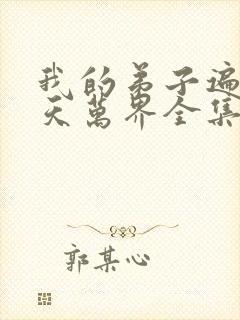 我的弟子遍
天萬界全集
郭某心